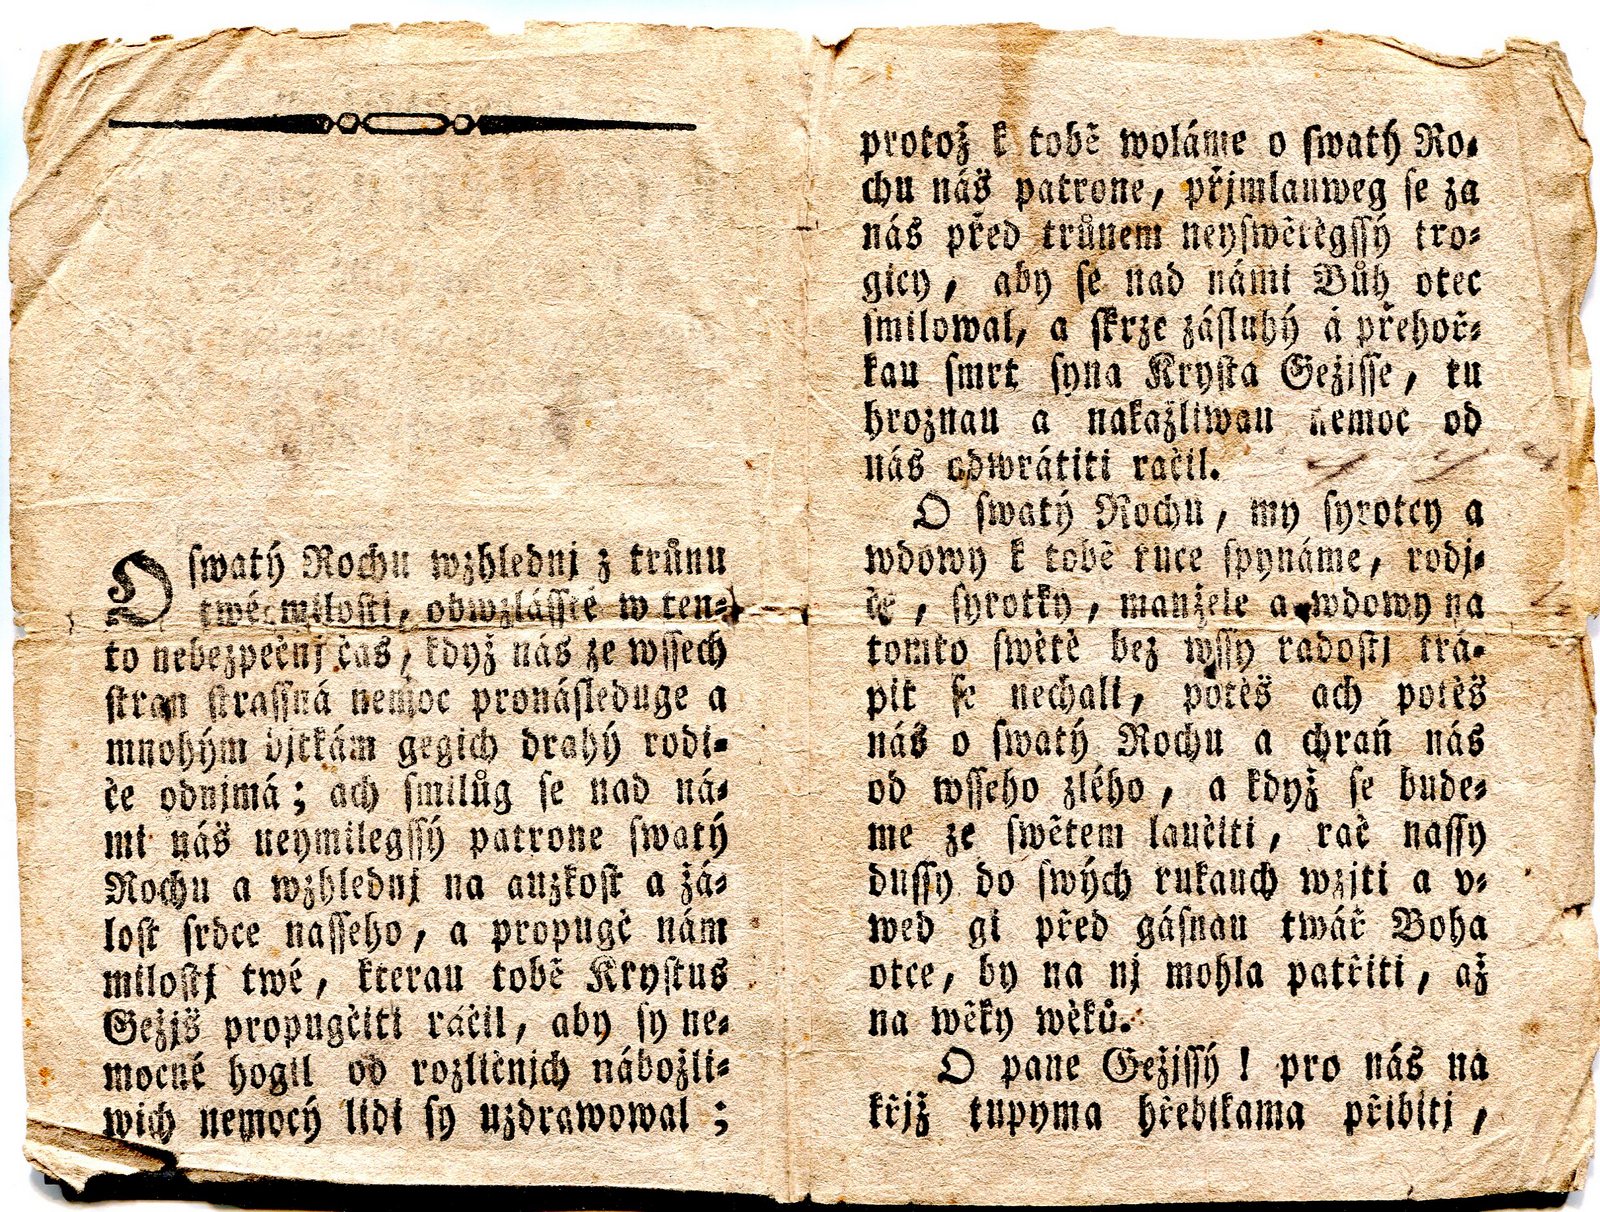 O swatý Rochu wzhlednj z trůnu
twé milosti, obwzlásstě w ten-
to nebezpečnj čas, když nás ze wssech
stran strassná nemoc pronásleduge a
mnohým djtkám gegich drahý rodi-
če odnjmá; ach smilůg se nad ná-
mi náš neymilegssý patrone swatý
Rochu a wzhlednj na auzkost a žá-
lost srdce nasseho, a propugč nám
milostj twé, kterau tobě Krystus
Gežjš propugčiti ráčil, aby sy ne-
mocné hogil od rozličnjch nábožli-
wich nemocý lidi sy uzdrawowal;
protož k tobě woláme o swatý Ro-
chu náš patrone, přjmlauweg se za
nás před trůnem neyswětěgssý tro-
gicy, aby se nad námi Bůh otec
smilowal, a skrze zásluhý á přehoř-
kau smrt syna Krysta Gežisse, tu
hroznau a nakažliwau nemoc od
nás odwrátiti račil.
O swatý Rochu, my syrotcy a
wdowy k tobě ruce spynáme, rodj-
če, syrotky, manžele a wdowy na
tomto swětě bez wssy radostj trá-
pit se nechali, potěš ach potěš
nás o swatý Rochu a chraň nás
od wsseho zlého, a když se bude-
me ze swětem laučiti, rač nassy
dussy do swých rukauch wzjti a v-
wed gi před gásnau twář Boha
otce, by na nj mohla patřiti, až
na wěky wěků.
O pane Gežissý! pro nás na
křjž tupyma hřebikama přibitj,